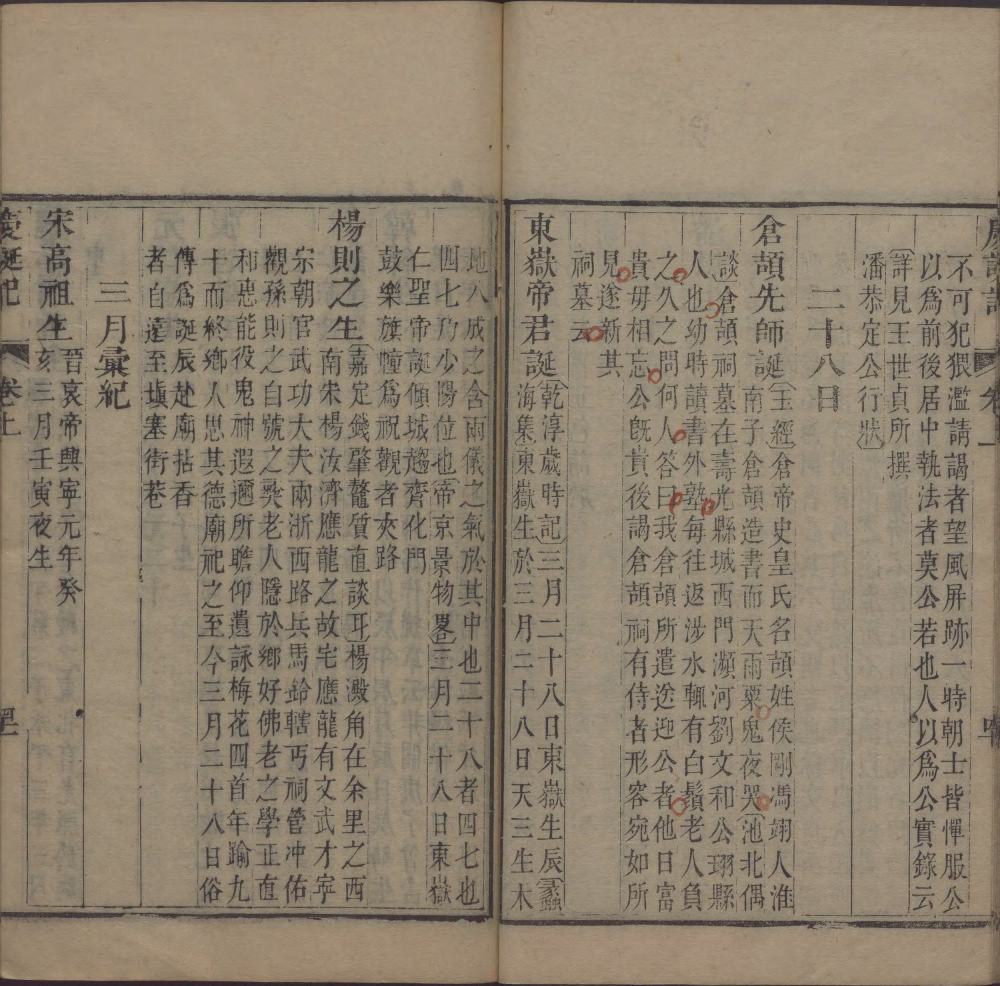 不可犯猥濫請謁者望風屏跡一時朝士皆憚服公
以爲前後居中執法者莫公若也人以爲公實錄云
詳見王世貞所撰
潘恭定公行狀
二十八日
倉頡先師誕玉經倉帝史皇氏名頡姓侯剛馮翊人淮
南子倉頡造書而天雨粟鬼夜哭池北偶
談倉頡祠墓在壽光縣城西門瀕河劉文和公珝縣
人也幼時讀書外塾每往返涉水輒有白鬚老人負
之久之問何人答曰我倉頡所遣送迎公者他日富
貴毋相忘公旣貴後謁倉頡祠有侍者形容宛如所
見遂新其
祠墓云
東嶽帝君誕乾淳歲時記三月二十八日東嶽生辰蠡
海集東嶽生於三月二十八日天三生木
地八成之含兩儀之氣於其中也二十八者四七也
四七乃少陽位也帝京景物畧三月二十八日東嶽
仁聖帝誕傾城趨齊化門
鼓樂旗幢爲祝觀者夾路
楊則之生嘉定錢肇鼇質直談耳楊澱角在余里之西
南宋楊汝濟應龍之故宅應龍有文武才寧
宋朝官武功大夫兩浙西路兵馬鈐轄丐祠管冲佑
觀孫則之自號之羐老人隱於鄉好佛老之學正直
和忠能役鬼神遐邇所瞻仰遺詠梅花四首年踰九
十而終鄉人思其德廟祀之至今三月二十八日俗
傳爲誕辰赴廟拈香
者自遠至塡塞街巷
三月彙紀
宋高祖生晉哀帝興寧元年癸
亥三月壬寅夜生
慶誕記 卷上